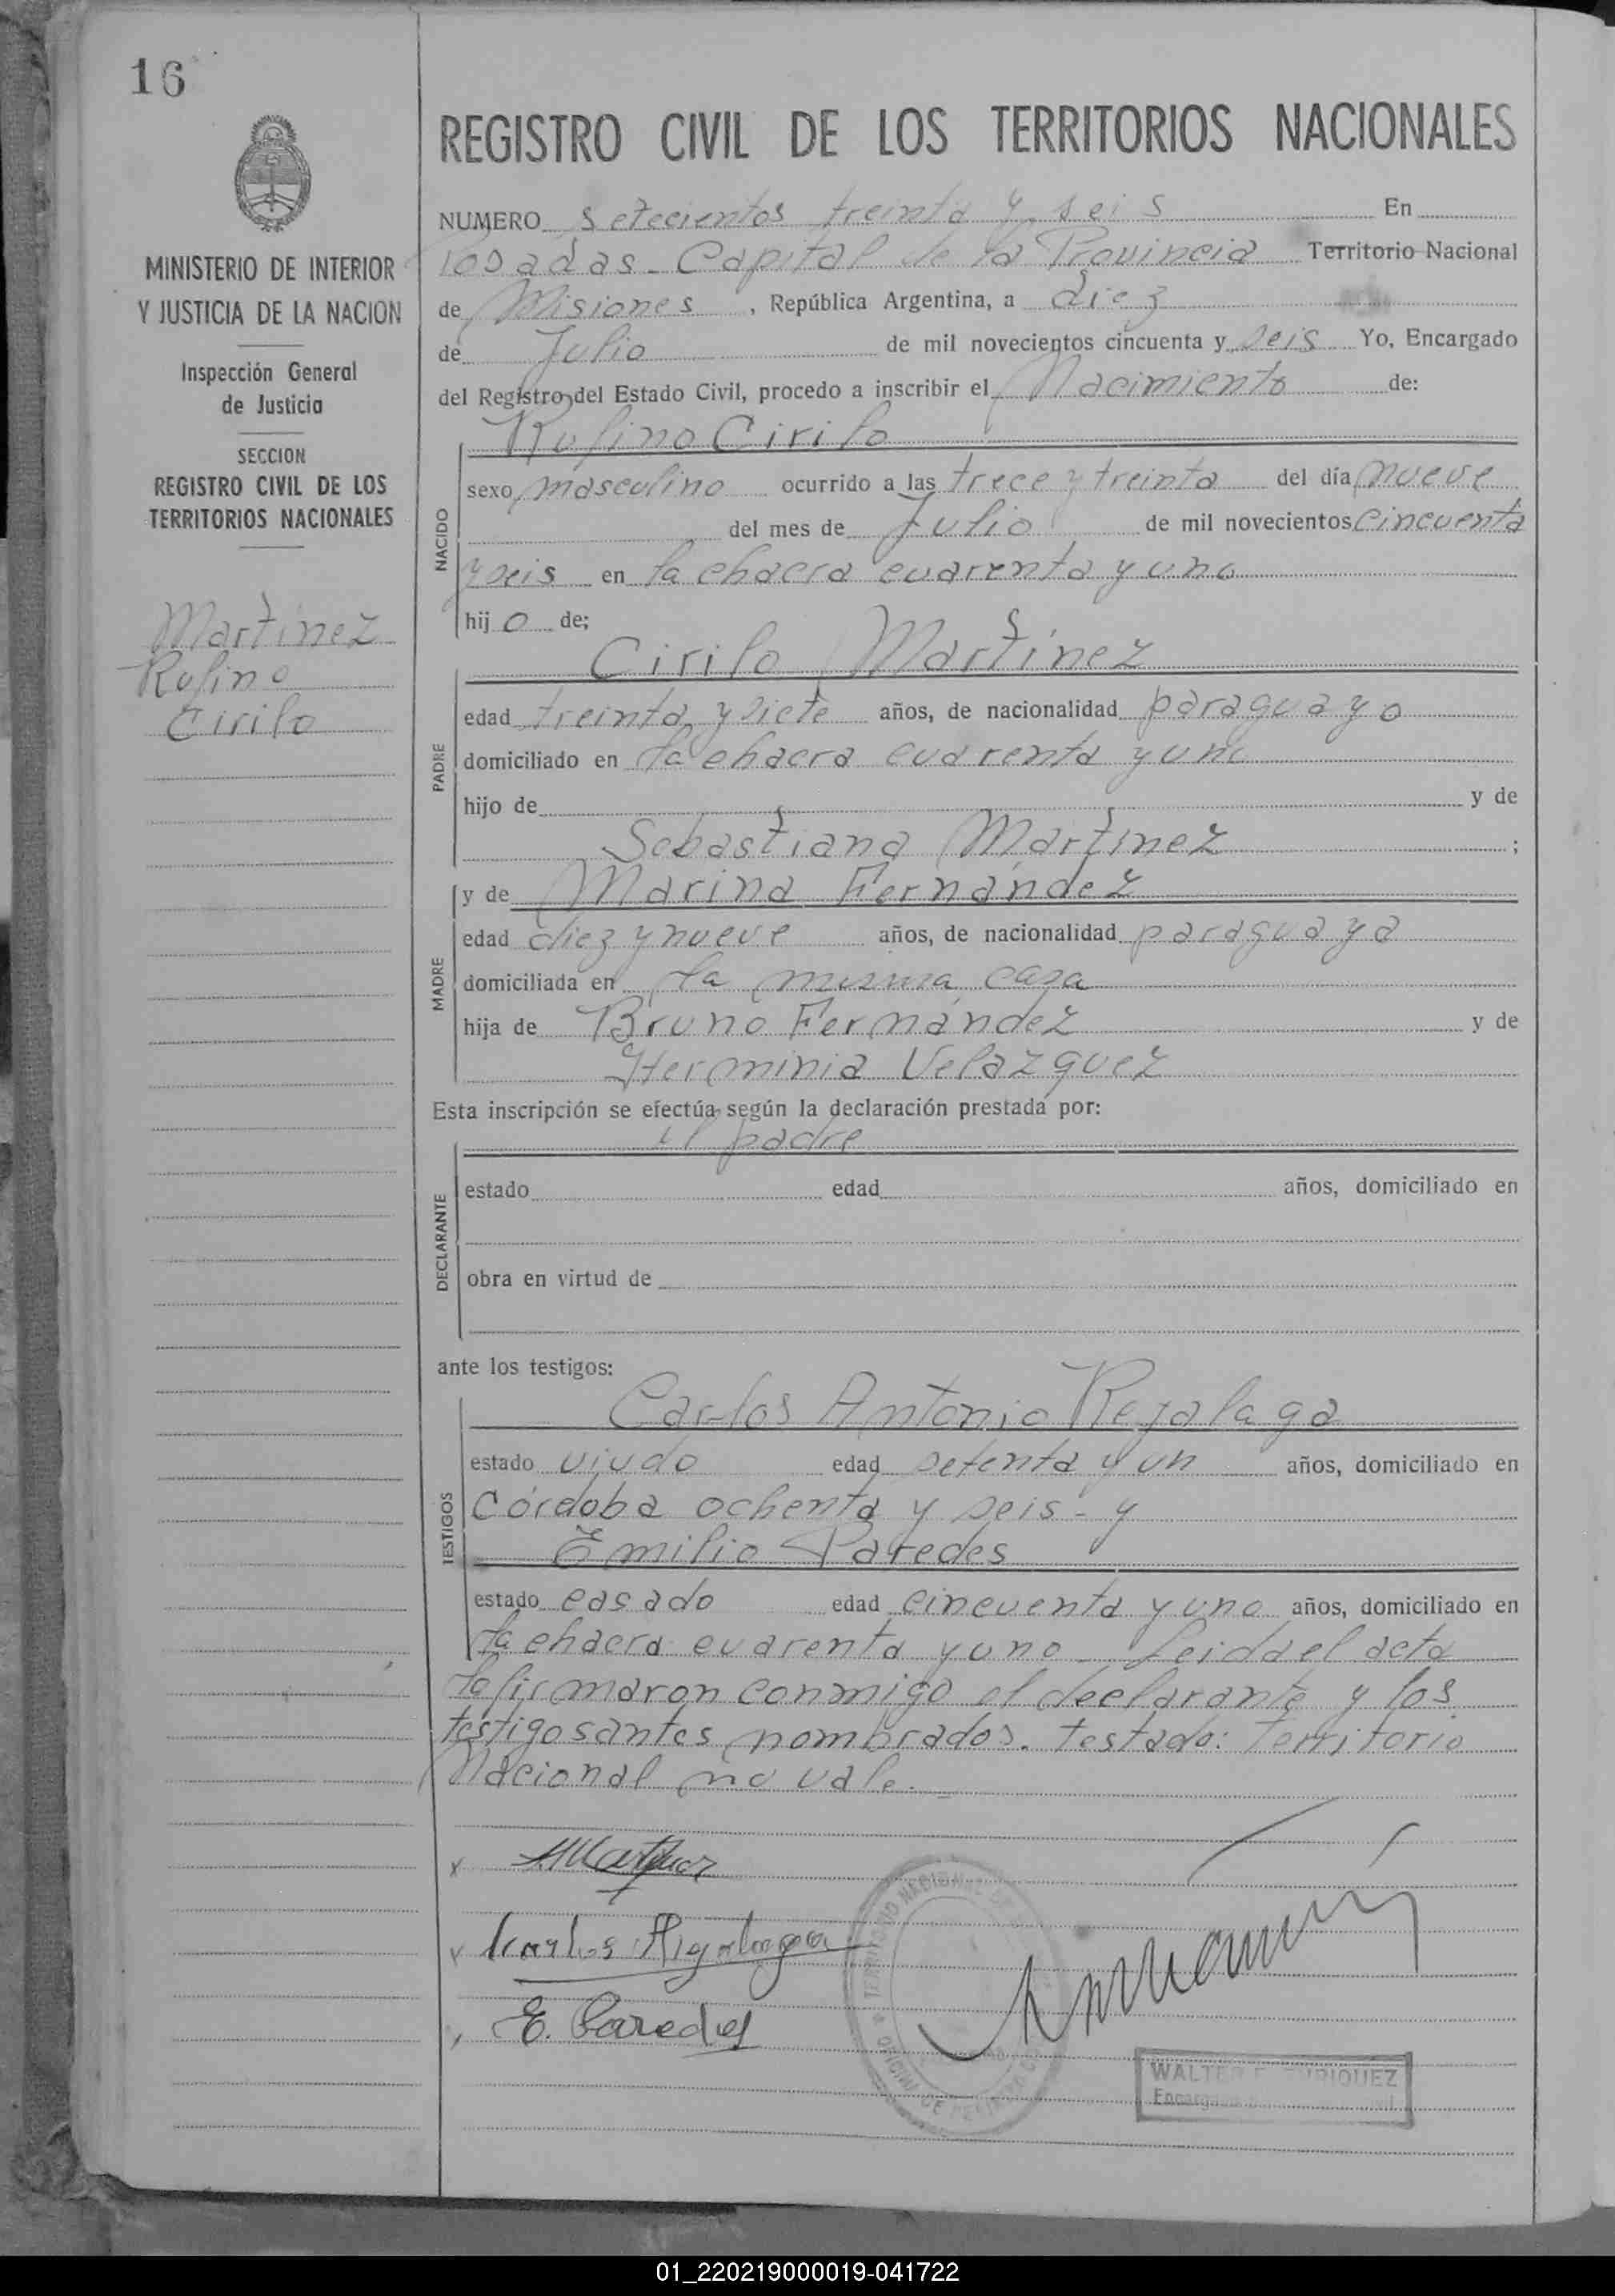 16
MINISTERIO DE INTERIOR
Y JUSTICIA DE LA NACION
Inspección General
de Justicia
SECCION
REGISTRO CIVIL DE LOS
TERRITORIOS NACIONALES
Martínez
Rufino
Cirilo
REGISTRO CIVIL DE LOS TERRITORIOS NACIONALES
NUMERO Setecientos treinta y seis En
Posadas - Capital de la Provincia Territorio Nacional
de Misiones, República Argentina, a diez
de Julio de mil novecientos cincuenta y seis Yo, Encargado
del Registro del Estado Civil, procedo a inscribir el Nacimiento de:
Rufino Cirilo
NACIDO
sexo masculino ocurrido a las trece y treinta del día nueve
del mes de Julio de mil novecientos cincuenta
y seis en la chacra cuarenta y uno
hijo de;
Cirilo Martínez
PADRE
edad treinta y siete años, de nacionalidad paraguayo
domiciliado en la chacra cuarenta y uno
hijo de y de
Sebastiana Martínez ;
y de Marina Fernández
MADRE
edad diez y nueve años, de nacionalidad paraguaya
domiciliada en la misma casa
hija de Bruno Fernández y de
Herminia Velazquez
Esta inscripción se efectúa según la declaración prestada por:
el padre
DECLARANTE
estado edad años, domiciliado en
obra en virtud de
ante los testigos:
Carlos Antonio Rejalaga
TESTIGOS
estado viudo edad setenta y un años, domiciliado en
Córdoba ochenta y seis - y
Emilio Paredes
estado casado edad cincuenta y uno años, domiciliado en
la chacra cuarenta y uno - Leida el acta
la firmaron conmigo el declarante y los
testigos antes nombrados. Testado: Territorio
Nacional no vale.
Carlos
E. Paredes
WALTER F. ENRIQUEZ
01_220219000019-041722